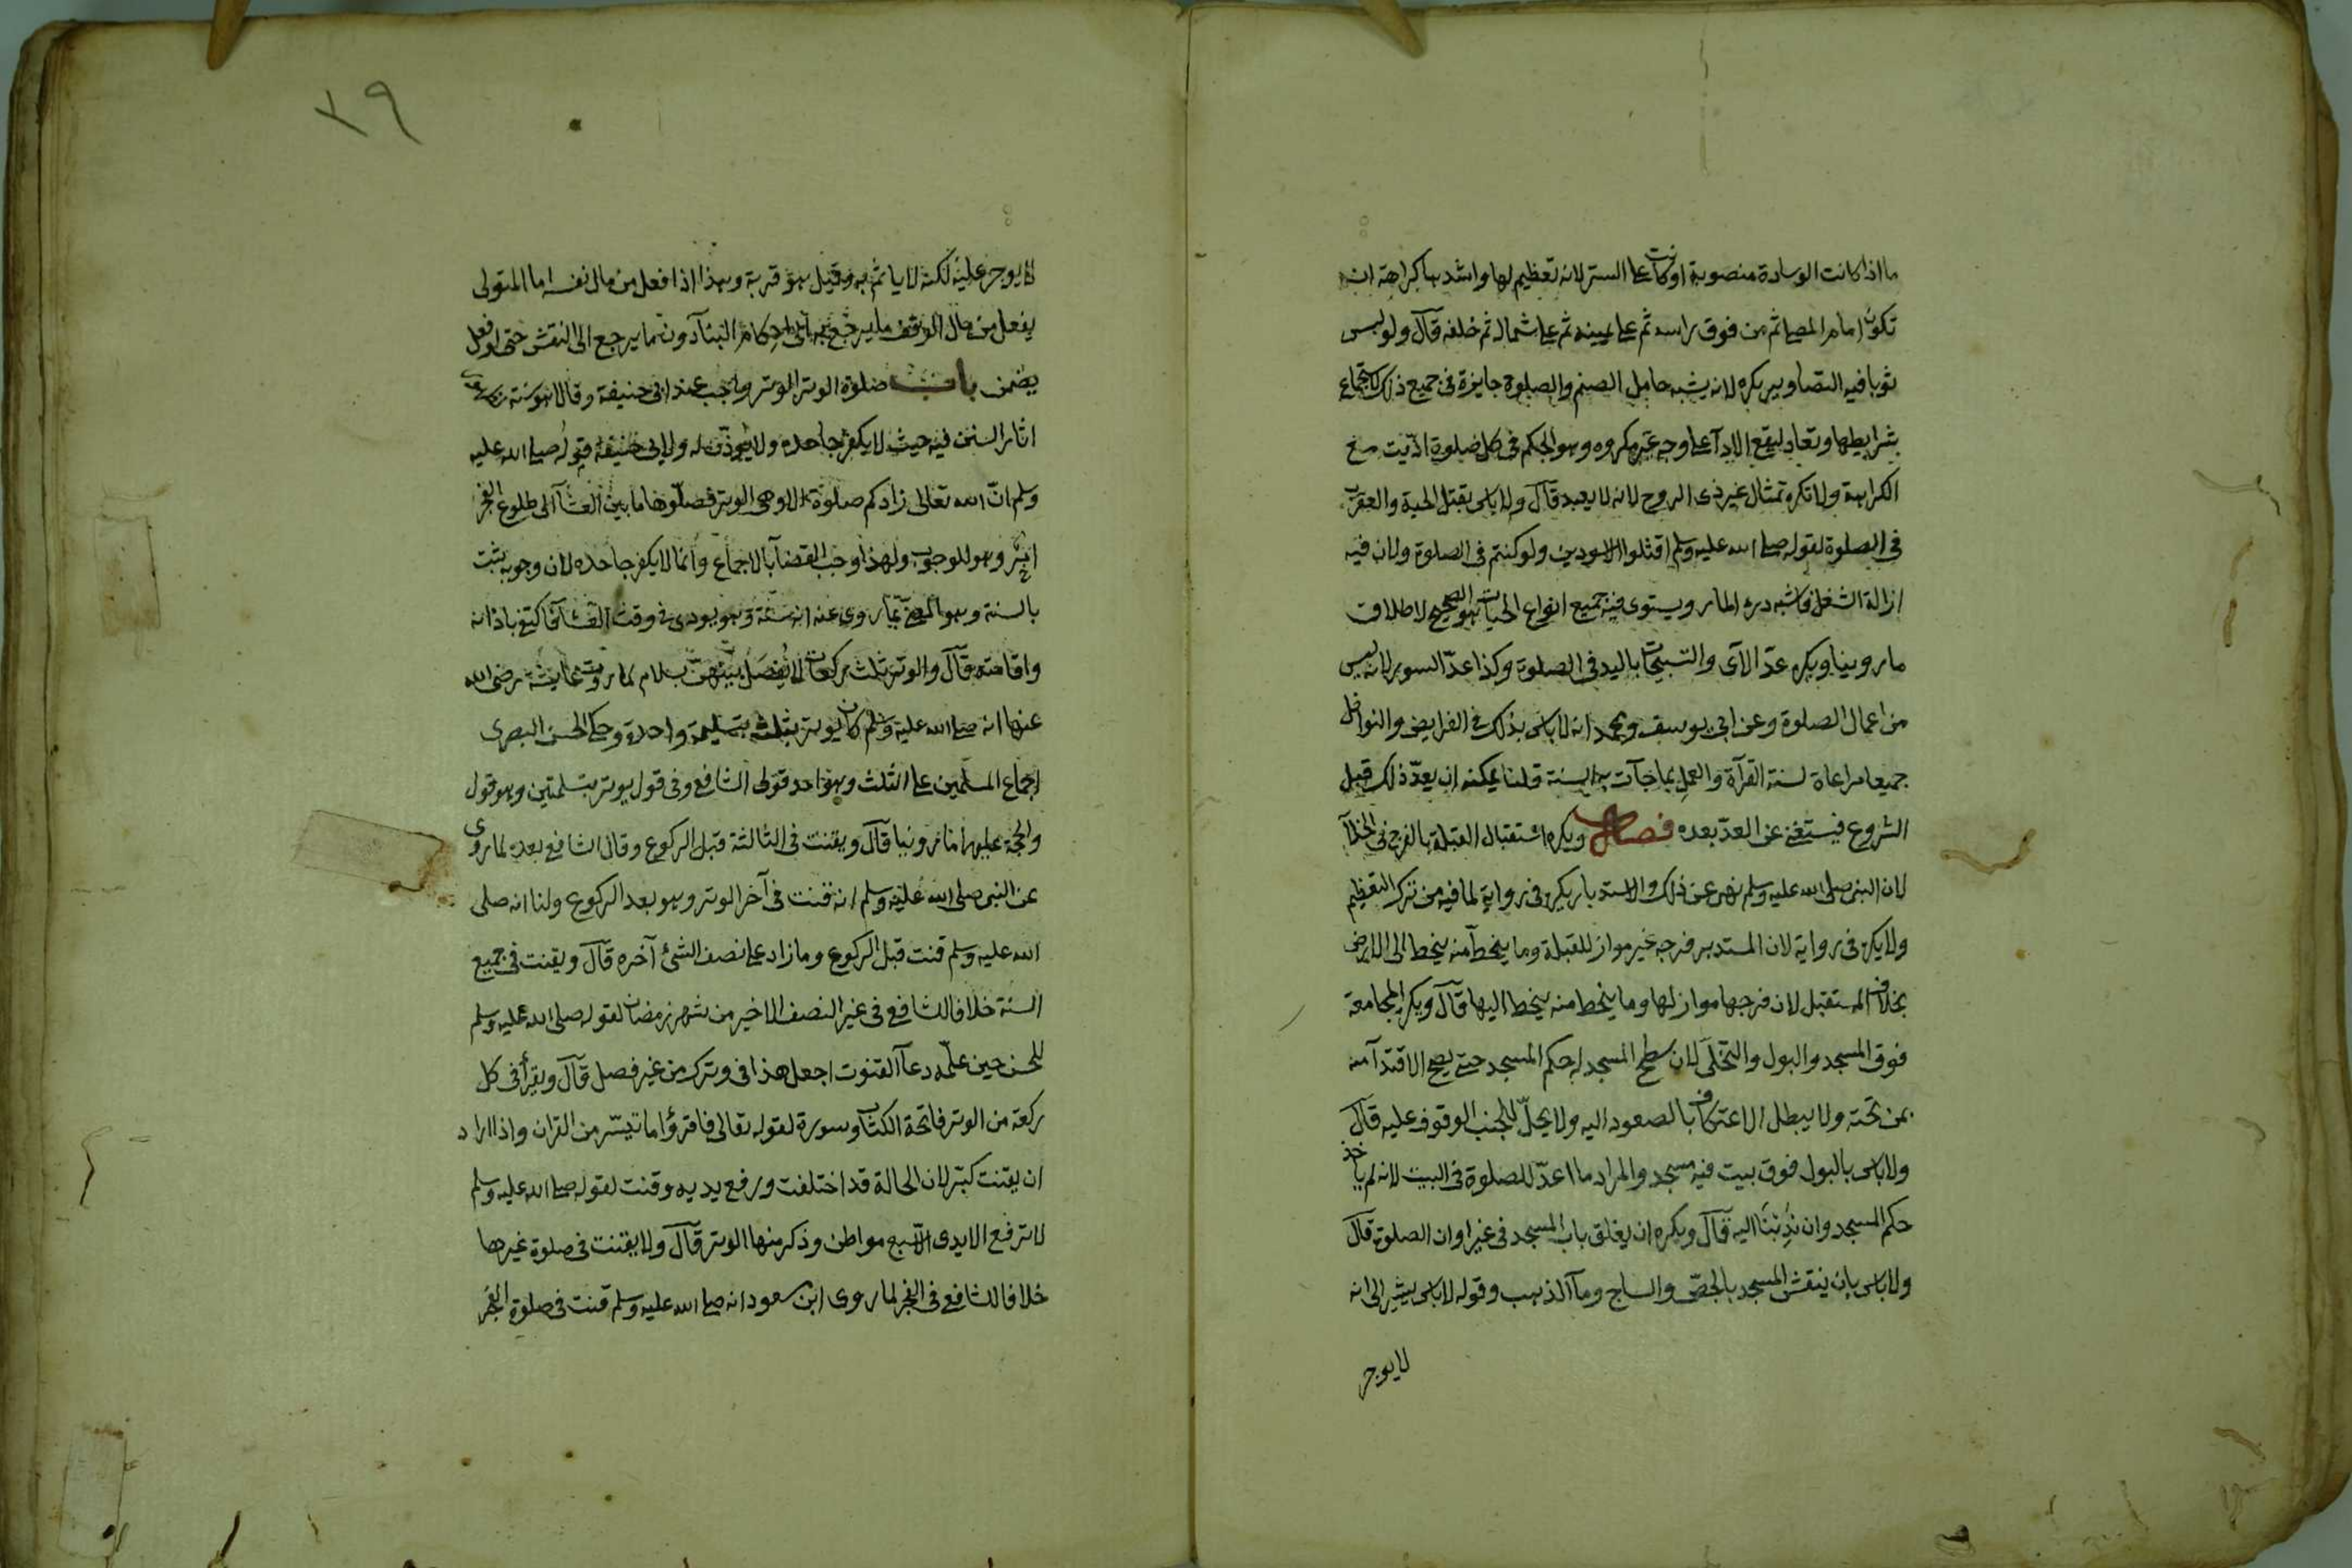 ما اذا كانت الوسادة منصوبة او كانت على الستر لانه تعظيم لها واشدها كراهة ان
تكون امام المصلى ثم من فوق راسه ثم على يمينه ثم على شماله ثم خلفه قال ولو لبس
ثوبا فيه التصاوير يكره لانه يشبه حامل الصنم والصلوة جايزة فى جميع ذلك لاستجماع
شرايطها وتعاد ليقع الادآ على وجه غير مكروه وهو الحكم فى كل صلوة اديت مع
الكراهة ولا تكره تمثال غير ذى الروح لانه لا يعبد قال ولا باس بقتل الحية والعقرب
فى الصلوة لقوله صلى الله عليه وسلم اقتلوا الاسودين ولو كنتم فى الصلوة ولان فيه
ازالة الشغل فاشبه درء المار ويستوى فيه جميع انواع الحيات هو الصحيح لاطلاق
ما روينا ويكره عدّ الآى والتسبيحات باليد فى الصلوة وكذا عدّ السور لانه ليس
من اعمال الصلوة وعن ابى يوسف ومحمد انه لا باس بذلك فى الفرايض والنوافل
جميعا مراعاة لسنة القرآة والعمل بما جآت به السنة قلنا يمكنه ان يعدّ ذلك قبل
الشروع فيستغنى عن العدّ بعده فصل ويكره استقبال القبلة بالفرج فى الخلآ
لان النبى صلى الله عليه وسلم نهى عن ذلك والاستدبار يكره فى رواية لما فيه من ترك التعظيم
ولا يكره فى رواية لان المستدبر فرجه غير مواز للقبلة وما ينحط منه ينحط الى الارض
بخلاف المستقبل لان فرجها مواز لها وما ينحط منه ينحط اليها قال ويكره المجامعة
فوق المسجد والبول والتخلى لان سطح المسجد له حكم المسجد حتى يصح الاقتدآ منه
بمن تحته ولا يبطل الاعتكاف بالصعود اليه ولا يحلّ للجنب الوقوف عليه قال
ولا باس بالبول فوق بيت فيه مسجد والمراد ما اعدّ للصلوة فى البيت لانه لم ياخذ
حكم المسجد وان ندبنا اليه قال ويكره ان يغلق باب المسجد فى غير اوان الصلوة قال
ولا باس بان ينقش المسجد بالجصّ والساج ومآ الذهب وقوله لا باس يشير الى انه
لا يوجر
٣٩
لا يوجر عليه لكنه لا ياثم به وقيل هو قربة وهذا اذا فعل من مال نفسه اما المتولى
يفعل من مال الوقف ما يرجع الى احكام البنآ دون ما يرجع الى النقش حتى لو فعل
يضمن باب صلوة الوتر الوتر واجب عند ابى حنيفة وقالا هو سنة
اثار السنن فيه حيث لا يكفر جاحده ولا يؤذّن له ولابى حنيفة قوله صلى الله عليه
وسلم انّ الله تعالى زادكم صلوة الا وهى الوتر فصلّوها ما بين العشآ الى طلوع الفجر
امر وهو للوجوب ولهذا وجب القضآ بالاجماع وانما لا يكفر جاحده لان وجوبه ثبت
بالسنة وهو المعنى بما روى عنه انه سنة وهو يودى فى وقت العشآ فاكتفى باذانه
واقامته قال والوتر ثلث ركعات لا يفصل بينهنّ بسلام لما روت عايشة رضى الله
عنها انه صلى الله عليه وسلم كان يوتر بثلث بتسليمة واحدة وحكى الحسن البصرى
اجماع المسلمين على الثلث وهو احد قولى الشافعى وفى قول يوتر بتسلمتين وهو قول
والحجة عليهما ما روينا قال ويقنت فى الثالثة قبل الركوع وقال الشافعى بعده لما روى
عن النبى صلى الله عليه وسلم انه قنت فى آخر الوتر وهو بعد الركوع ولنا انه صلى
الله عليه وسلم قنت قبل الركوع وما زاد على نصف الشئ آخره قال ويقنت فى جميع
السنة خلافا للشافعى فى غير النصف الاخير من شهر رمضان لقوله صلى الله عليه وسلم
للحسن حين علّمه دعآ القنوت اجعل هذا فى وترك من غير فصل قال ويقرأ فى كل
ركعة من الوتر فاتحة الكتاب وسورة لقوله تعالى فاقرؤا ما تيسّر من القران واذا اراد
ان يقنت كبّر لان الحالة قد اختلفت ورفع يديه وقنت لقوله صلى الله عليه وسلم
لا ترفع الايدى الا فى سبع مواطن وذكر منها الوتر قال ولا يقنت فى صلوة غيرها
خلافا للشافعى فى الفجر لما روى ابن مسعود انه صلى الله عليه وسلم قنت فى صلوة الفجر